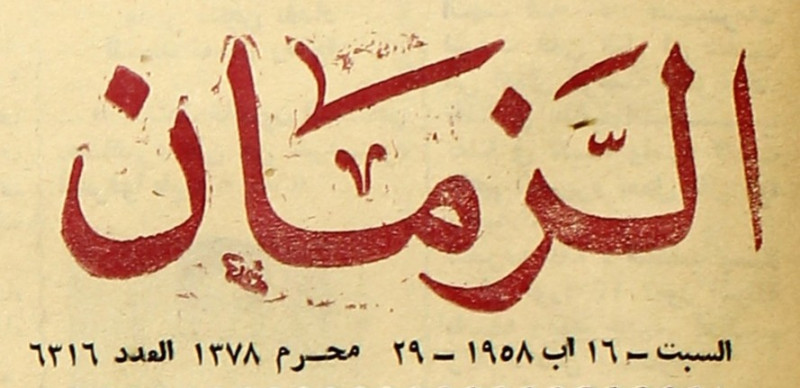 الزمان
السبت - ١٦ اب ١٩٥٨ - ٢٩ محرم ١٣٧٨ العدد ٦٣١٦